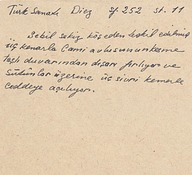 Türk Sanatı Diez sf. 252 st. 11
Sebil sekiz köşeden teşkil edilmiş
üç kenarla Cami avlusunun kesme
taş duvarından dışarı fırlıyor ve
sütunlar üzerine üç sivri kemerle
caddeye açılıyor.